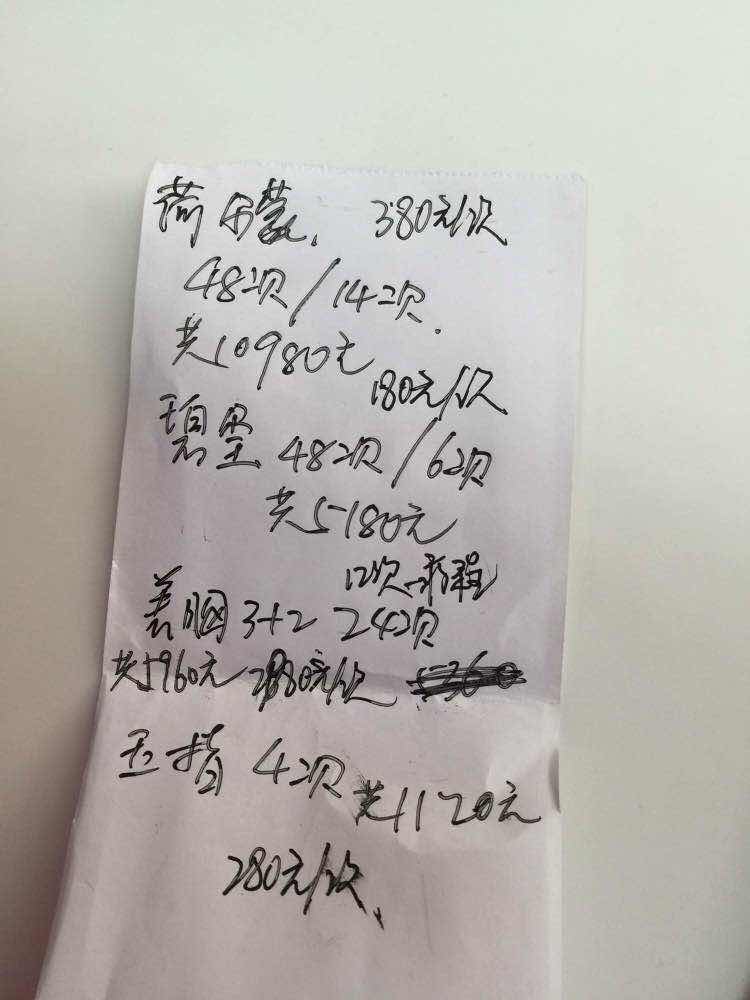 荷尔蒙, 380元/次
48次/14次.
共10980元
180元/次
碧 48次/6次
共5180元
12次一疗程
美胸 3+2 24次
共5960元 280元/次
玉指 4次 共1120元
280元/次、